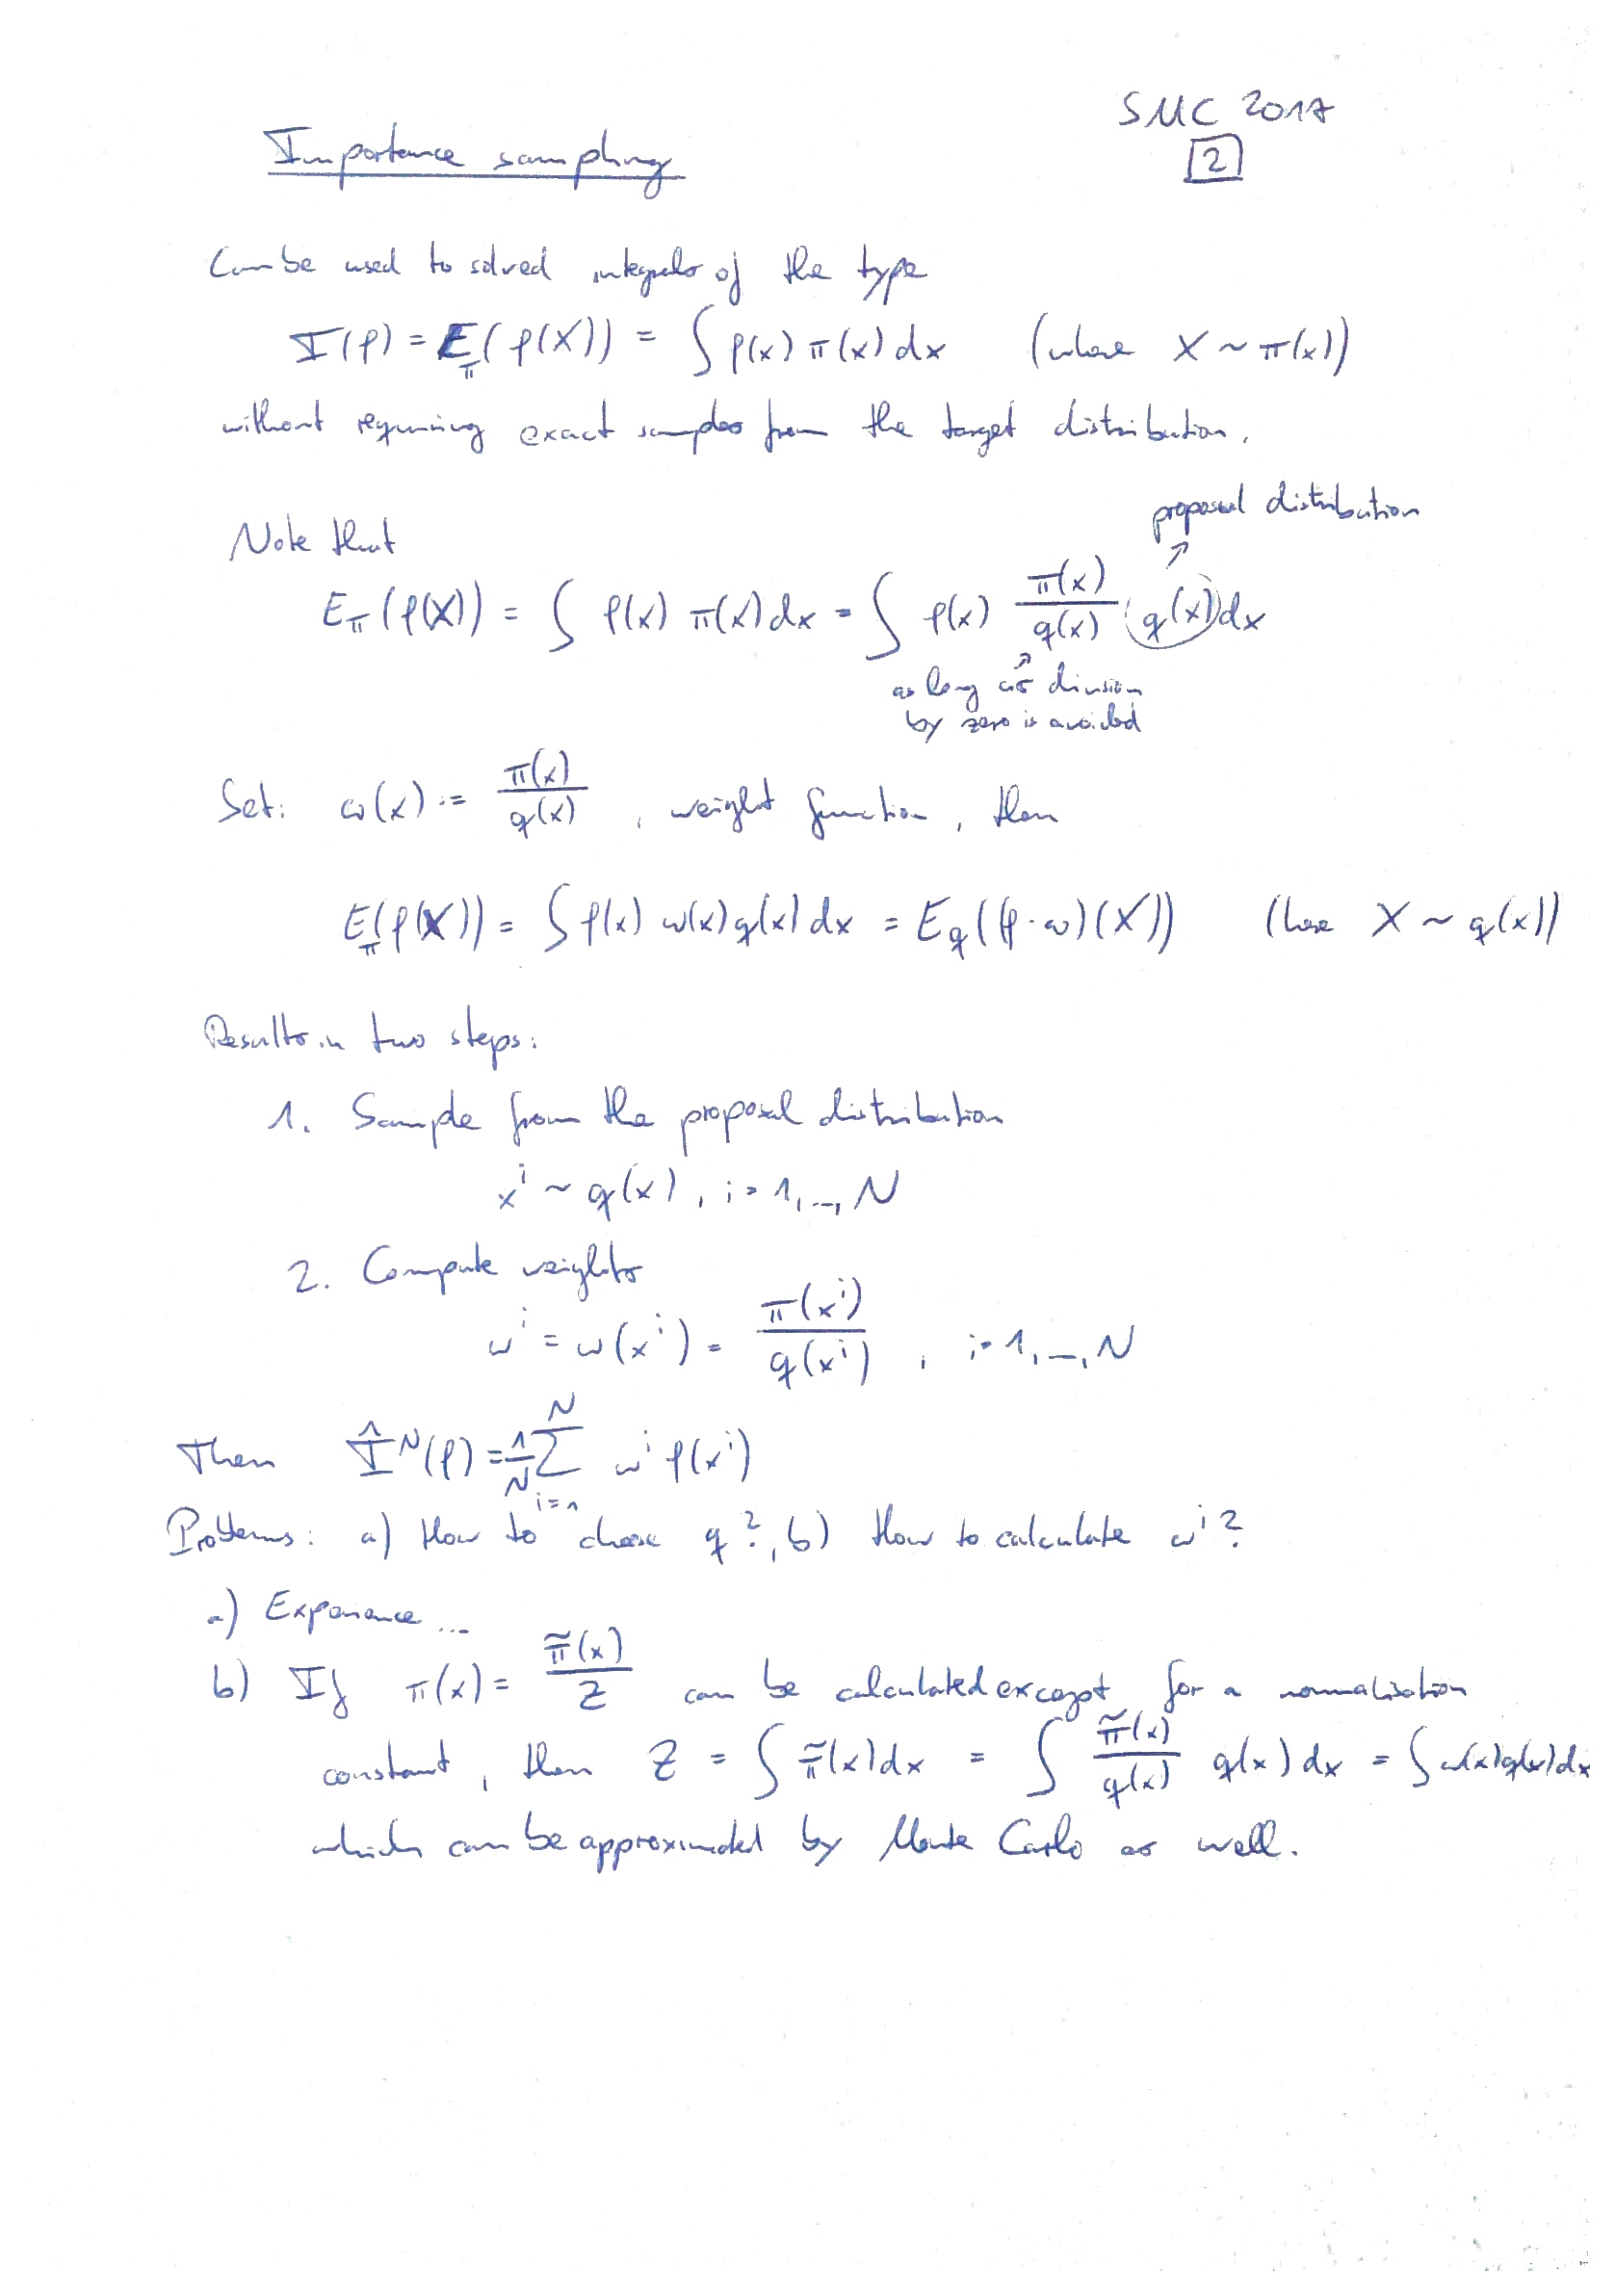 SMC 2017
2
Importance sampling
Can be used to solved integrals of the type
I(φ) = E_π(φ(X)) = ∫ φ(x) π(x) dx (where X ~ π(x))
without requiring exact samples from the target distribution.
proposal distribution
Note that
E_π(φ(X)) = ∫ φ(x) π(x) dx = ∫ φ(x) π(x)/q(x) q(x) dx
as long as division
by zero is avoided
Set: ω(x) := π(x)/q(x) , weight function, then
E_π(φ(X)) = ∫ φ(x) ω(x) q(x) dx = E_q((φ·ω)(X)) (here X ~ q(x))
Results in two steps:
1. Sample from the proposal distribution
x^i ~ q(x), i = 1, ..., N
2. Compute weights
ω^i = ω(x^i) = π(x^i)/q(x^i) , i = 1, ..., N
Then Î^N(φ) = 1/N ∑_{i=1}^N ω^i φ(x^i)
Problems: a) How to choose q?, b) How to calculate ω^i?
a) Experience ...
b) If π(x) = π̃(x)/Z can be calculated except for a normalisation
constant, then Z = ∫ π̃(x) dx = ∫ π̃(x)/q(x) q(x) dx = ∫ ω(x) q(x) dx
which can be approximated by Monte Carlo as well.